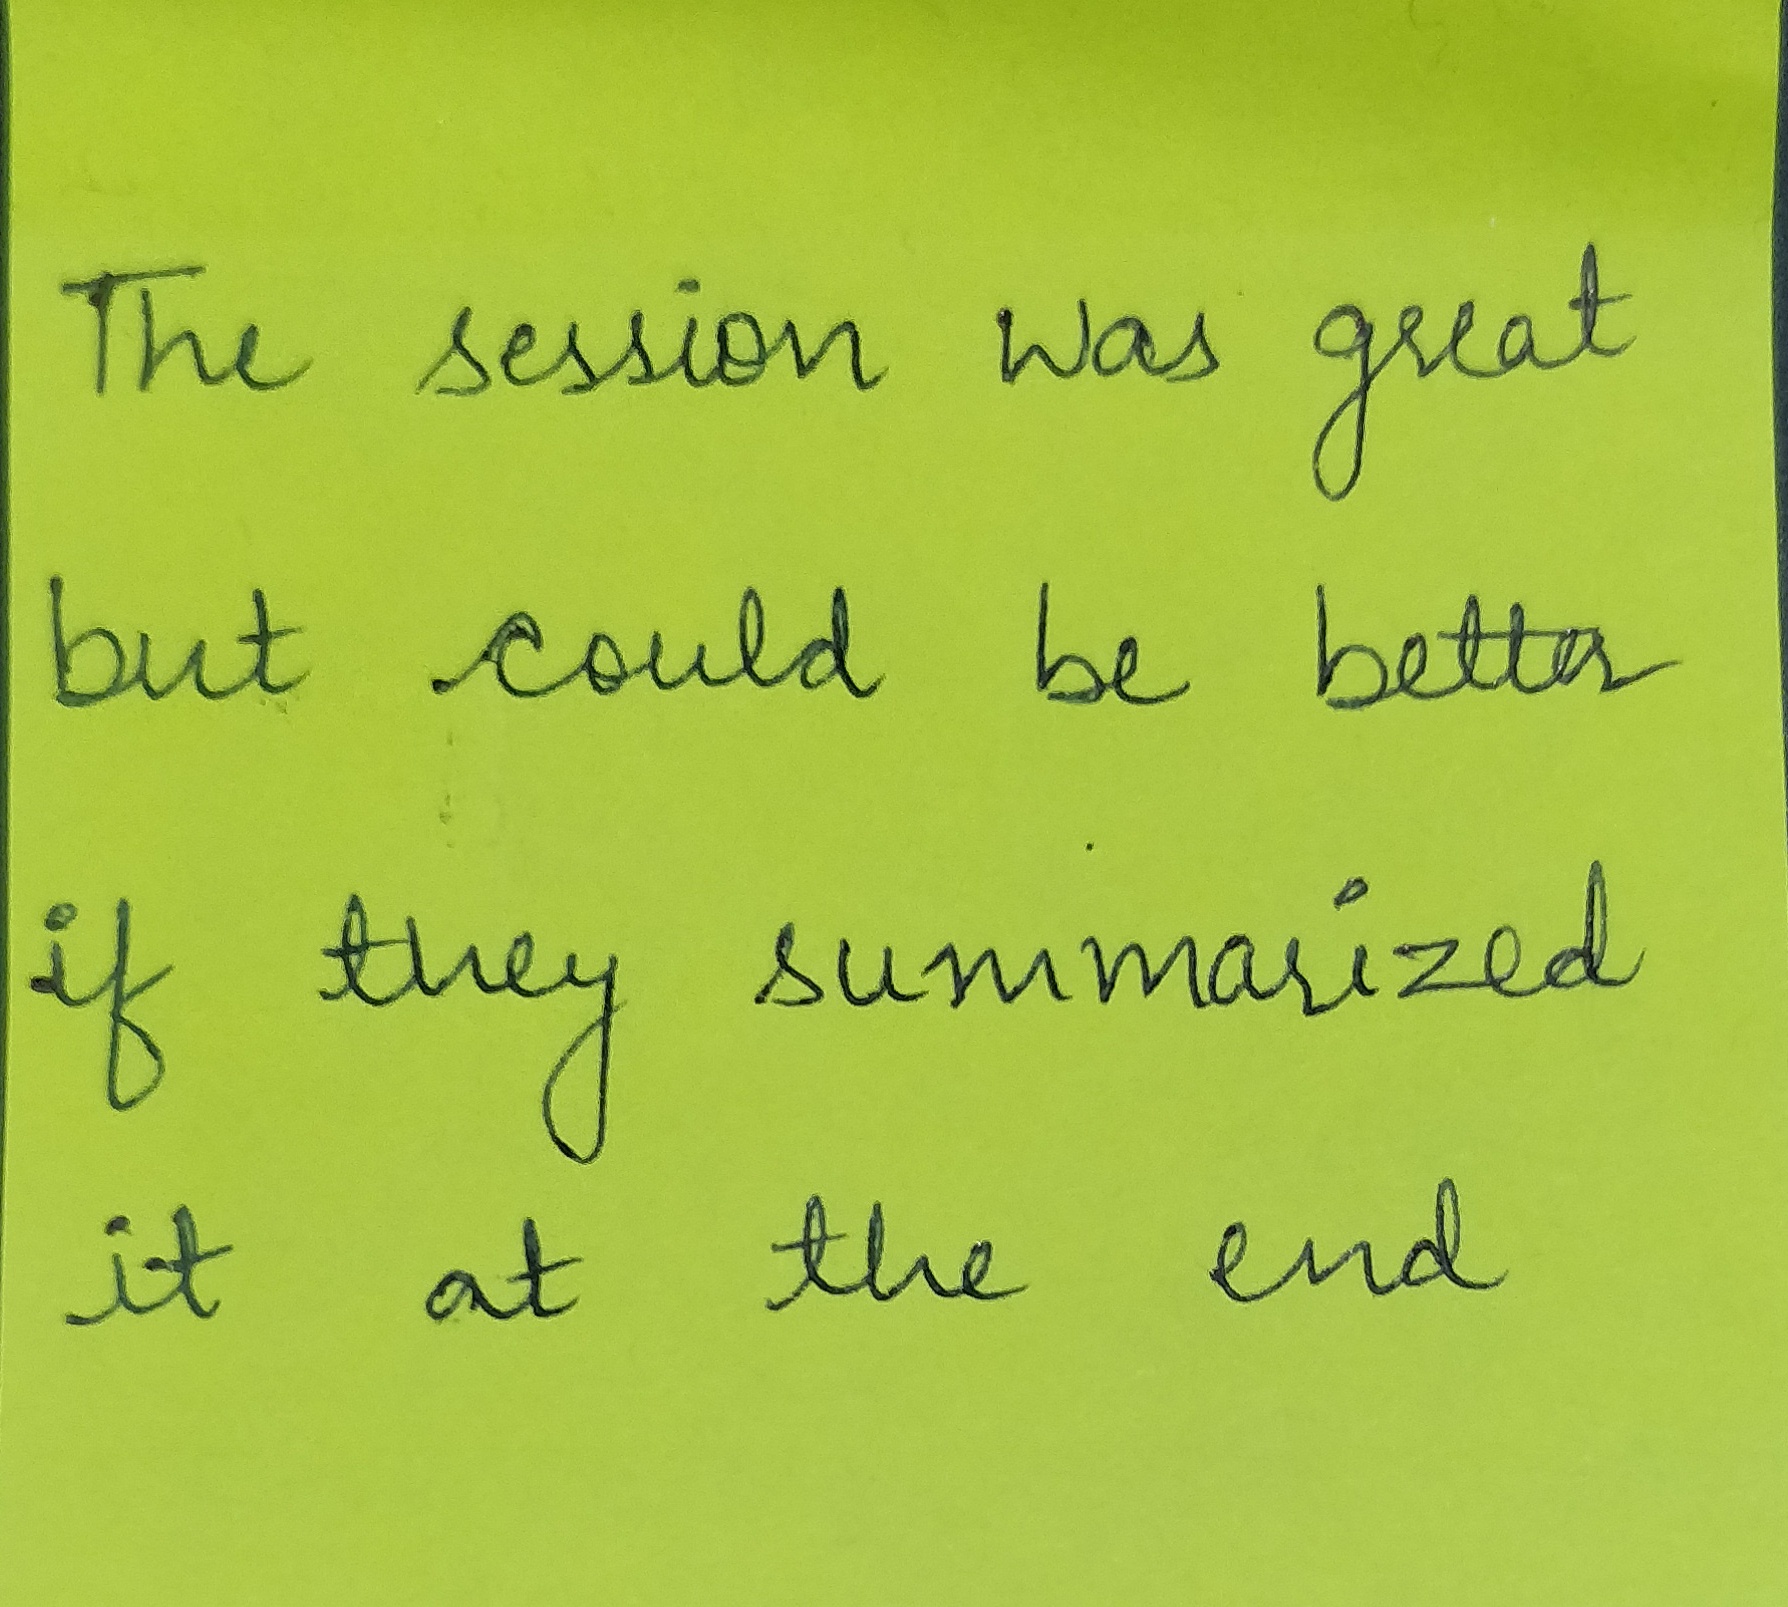 The session was great
but could be better
if they summarized
it at the end